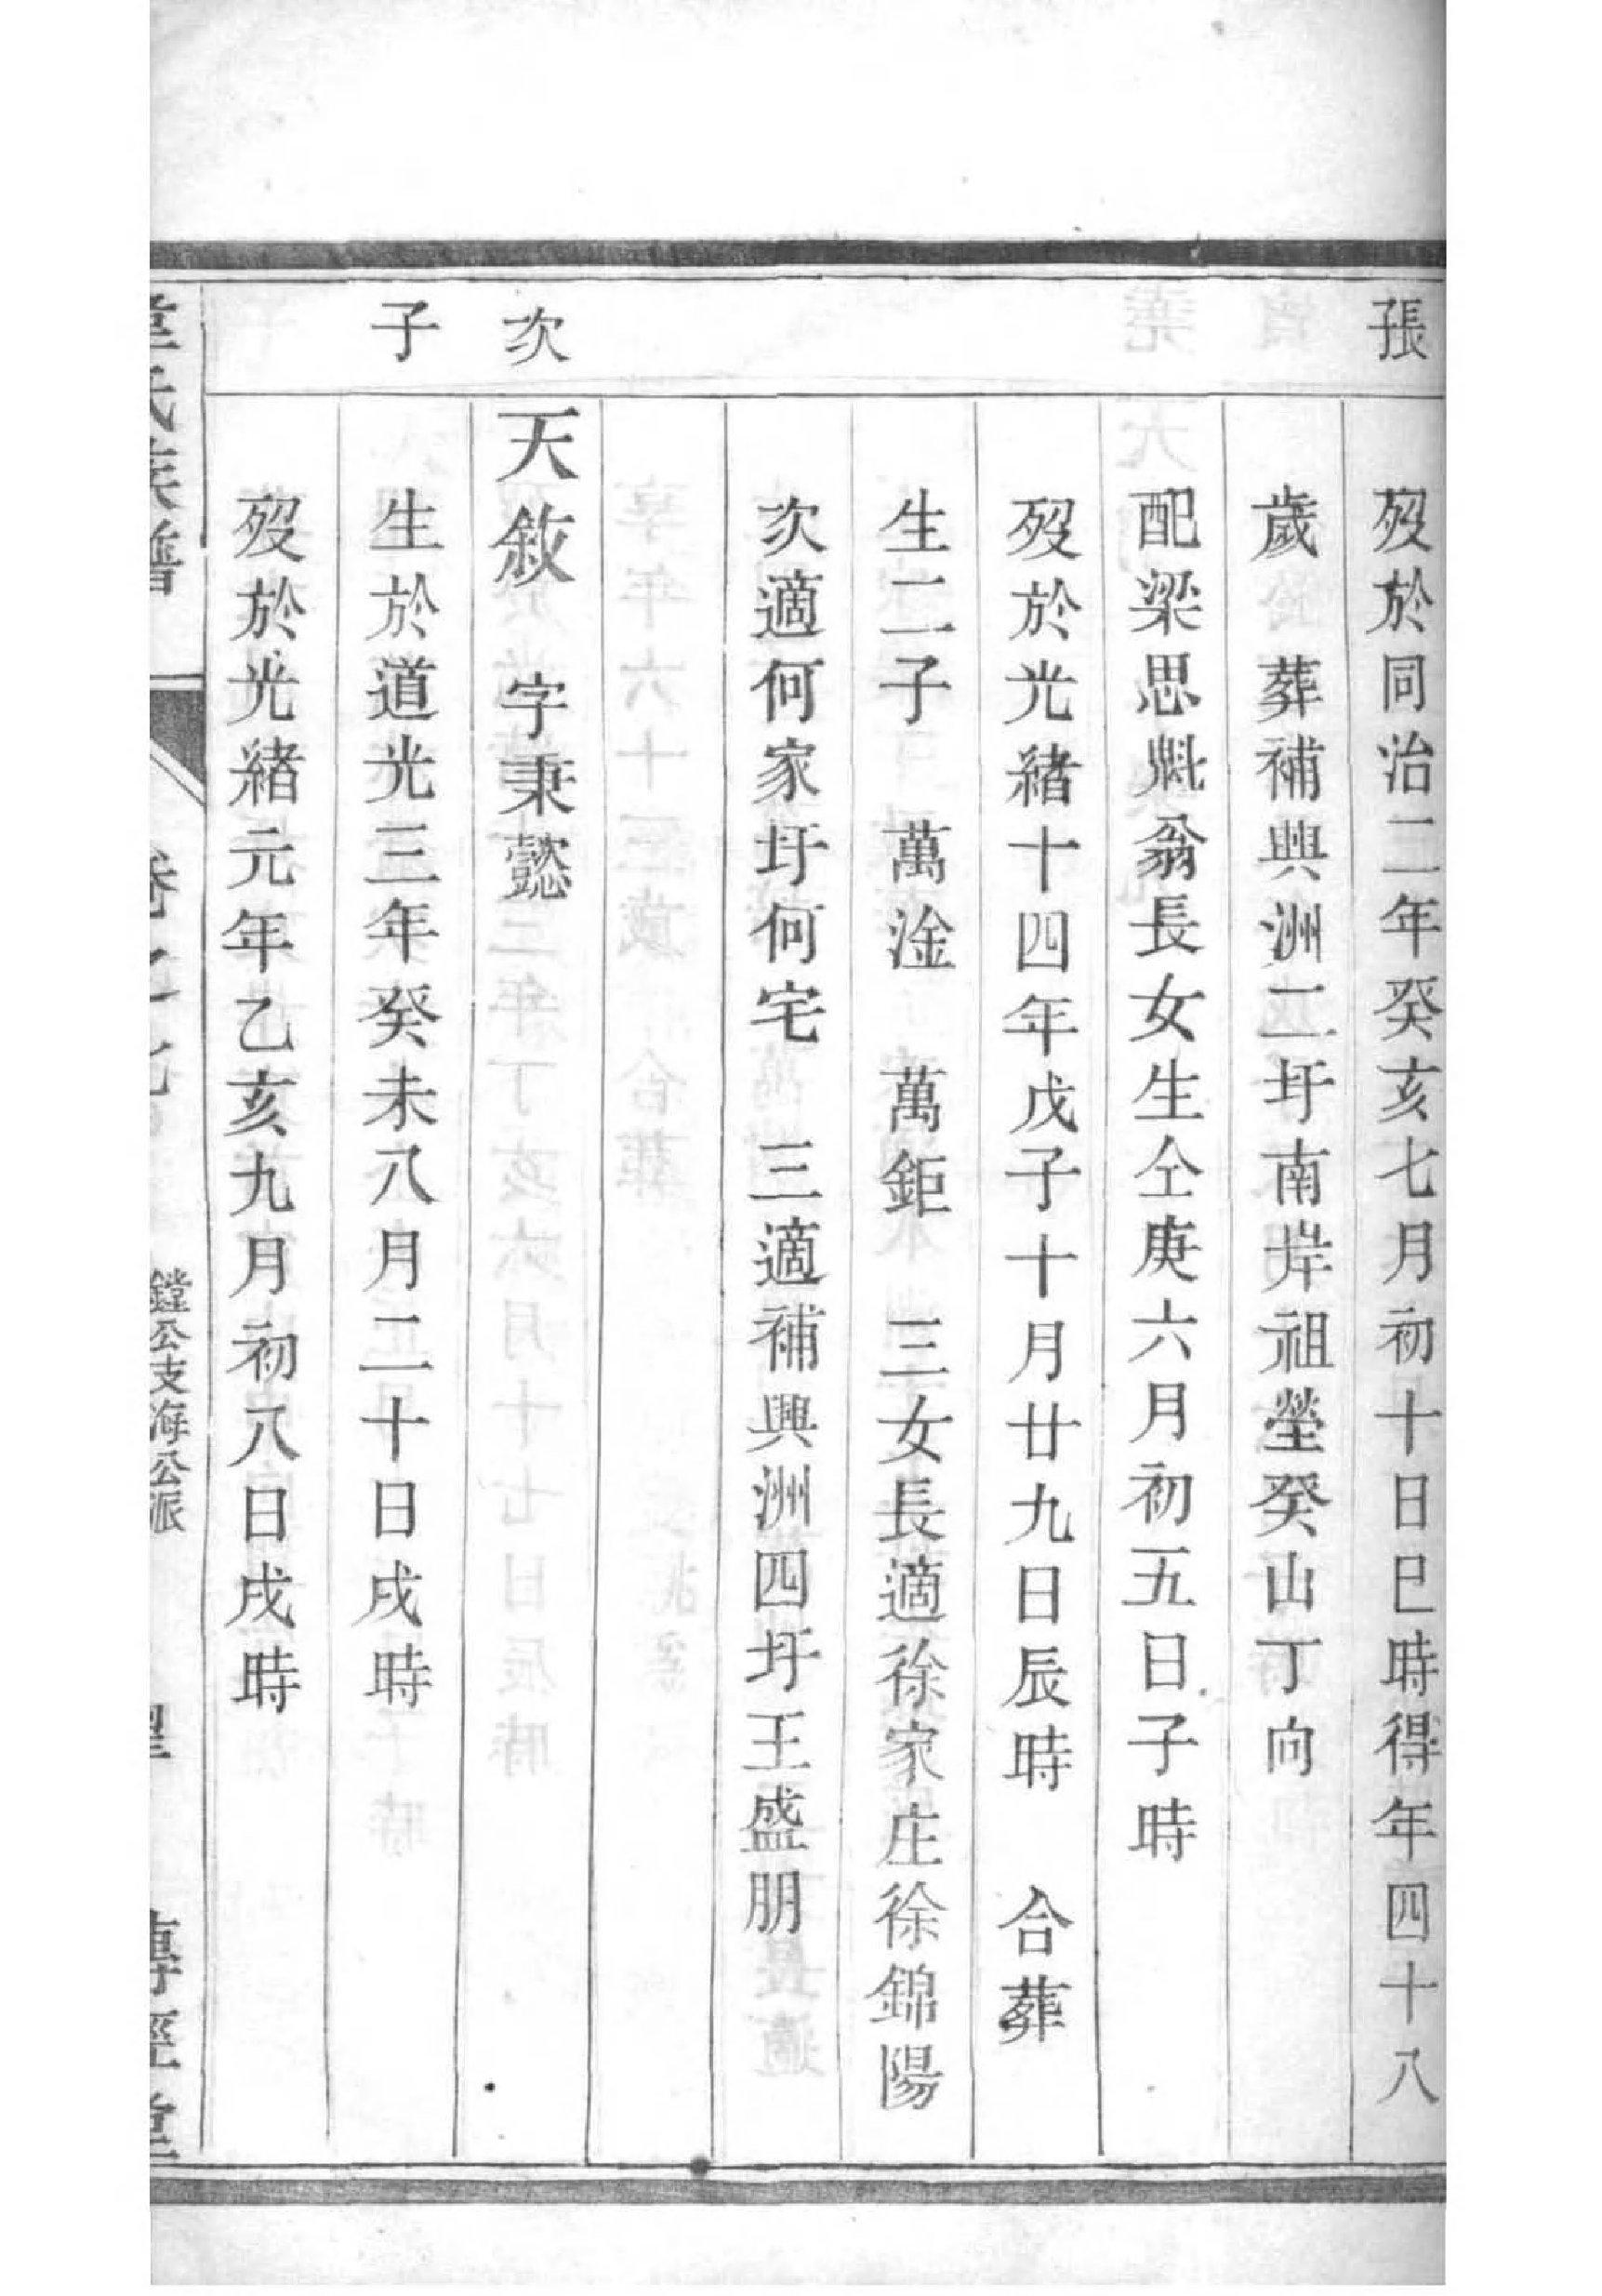 張
歿於同治二年癸亥七月初十日巳時得年四十八
歲 葬補興洲二圩南岸祖塋癸山丁向
配梁思魁翁長女生仝庚六月初五日子時
歿於光緒十四年戊子十月廿九日辰時 合葬
生二子 萬淦 萬鉅 三女長適徐家庄徐錦陽
次適何家圩何宅 三適補興洲四圩王盛朋
次 天敘 字秉懿
子 生於道光三年癸未八月二十日戌時
歿於光緒元年乙亥九月初八日戌時
氏族譜 鏜公支海公派 傳經堂